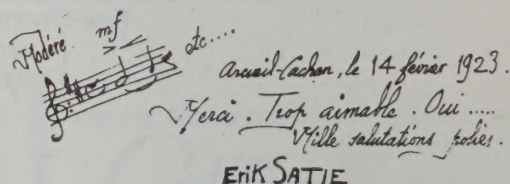 Modéré
mf
etc....
Arcueil-Cachan, le 14 février 1923.
Merci. Trop aimable. Oui.....
Mille salutations polies.
Erik SATIE